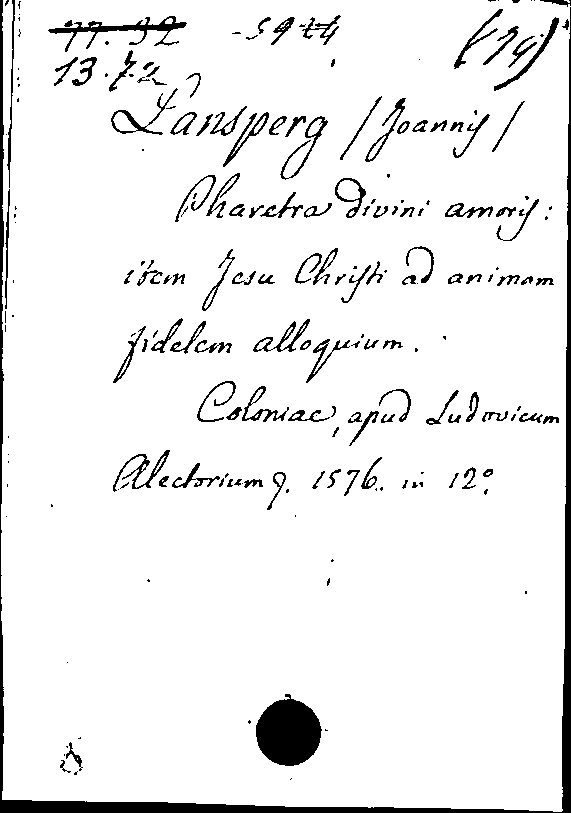 77.32
13.72
Lansperg / Joannis /
Pharetra divini amoris:
item Jesu Christi ad animam
fidelem alloquium.
Coloniae, apud Ludovicum
Alectorium 1576. in 12º.